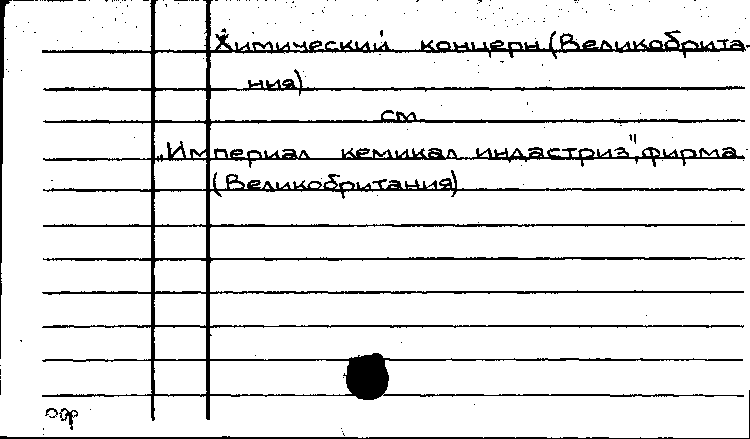 Химический концерн (Великобрита-
ния)
см
„Империал кемикал индастриз", фирма
(Великобритания)